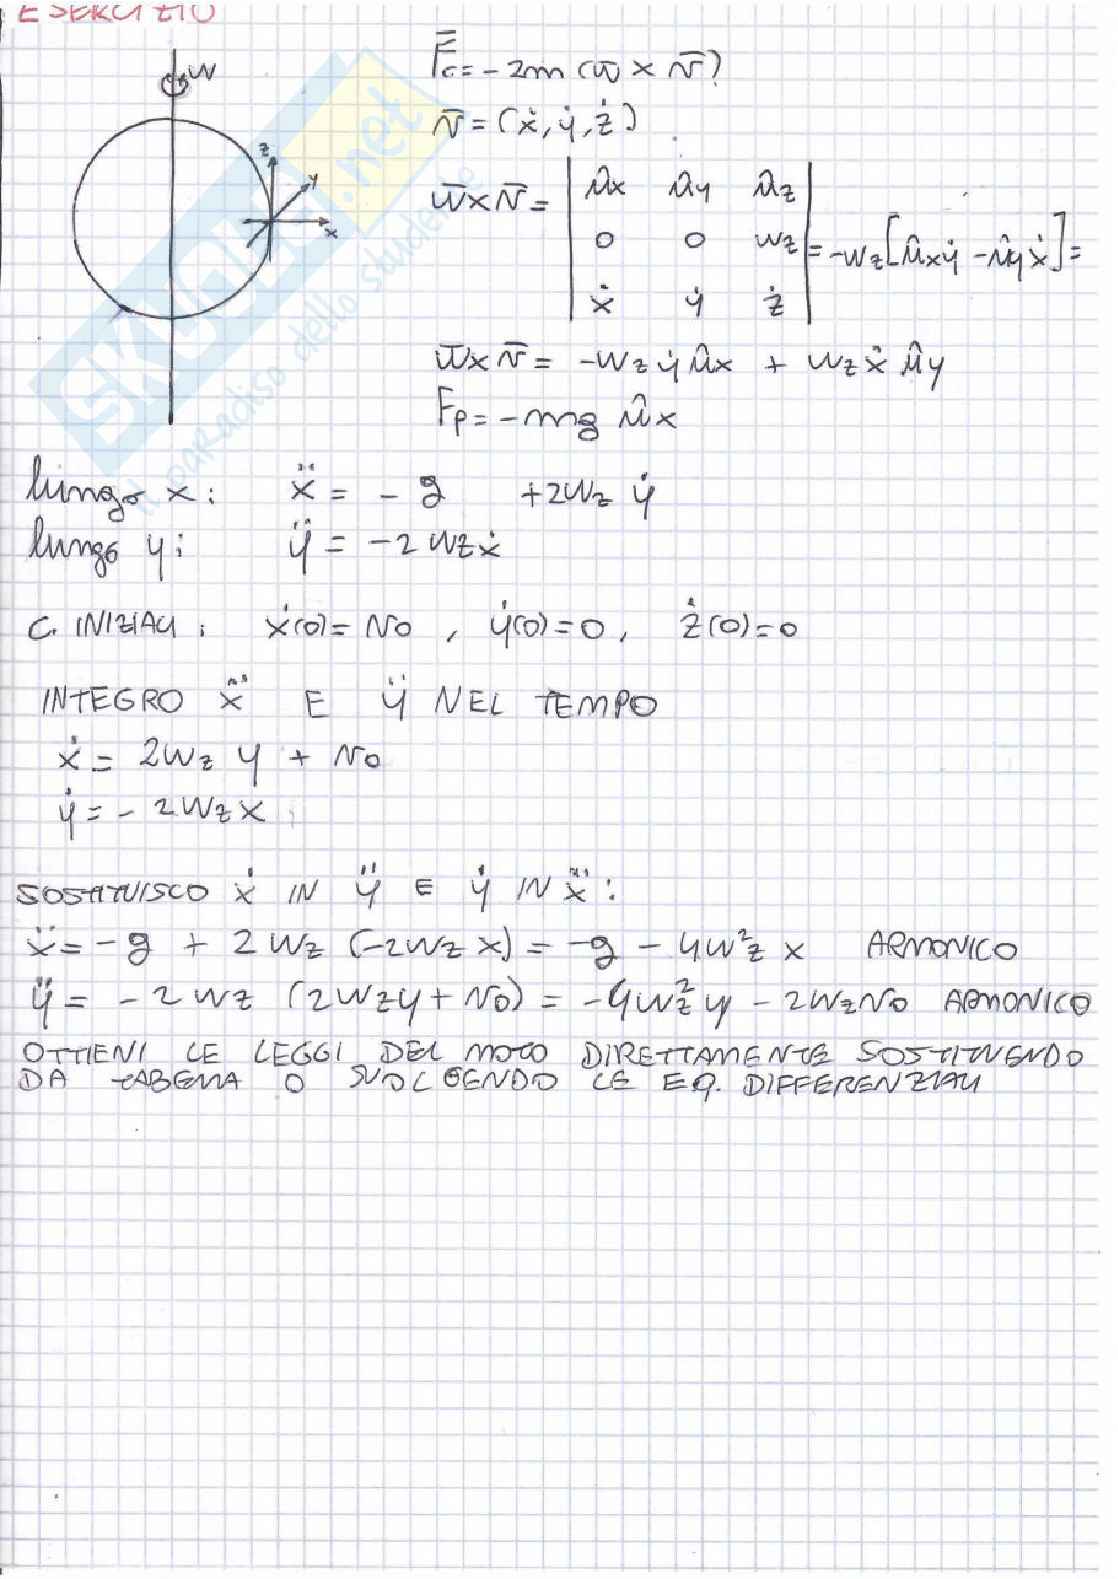 ESERCIZIO
ω
z
y
x
F̄c = -2m (ω̄ × v̄)
v̄ = (ẋ, ẏ, ż)
ω̄ × v̄ = | ûx ûy ûz |
| 0 0 ωz | = -ωz [ûx ẏ - ûy ẋ] =
| ẋ ẏ ż |
ω̄ × v̄ = -ωz ẏ ûx + ωz ẋ ûy
Fp = -mg ûx
lungo x: ẍ = -g +2ωz ẏ
lungo y: ÿ = -2ωz ẋ
C. INIZIALI: ẋ(0) = v0, ẏ(0) = 0, ż(0) = 0
INTEGRO ẍ E ÿ NEL TEMPO
ẋ = 2ωz y + v0
ẏ = -2ωz x
SOSTITUISCO ẋ IN ÿ E ẏ IN ẍ:
ẍ = -g + 2ωz (-2ωz x) = -g - 4ω²z x ARMONICO
ÿ = -2ωz (2ωz y + v0) = -4ω²z y - 2ωz v0 ARMONICO
OTTIENI LE LEGGI DEL MOTO DIRETTAMENTE SOSTITUENDO
DA TABELLA O SVOLGENDO LE EQ. DIFFERENZIALI
SKUOLA.net
il paradiso dello studente